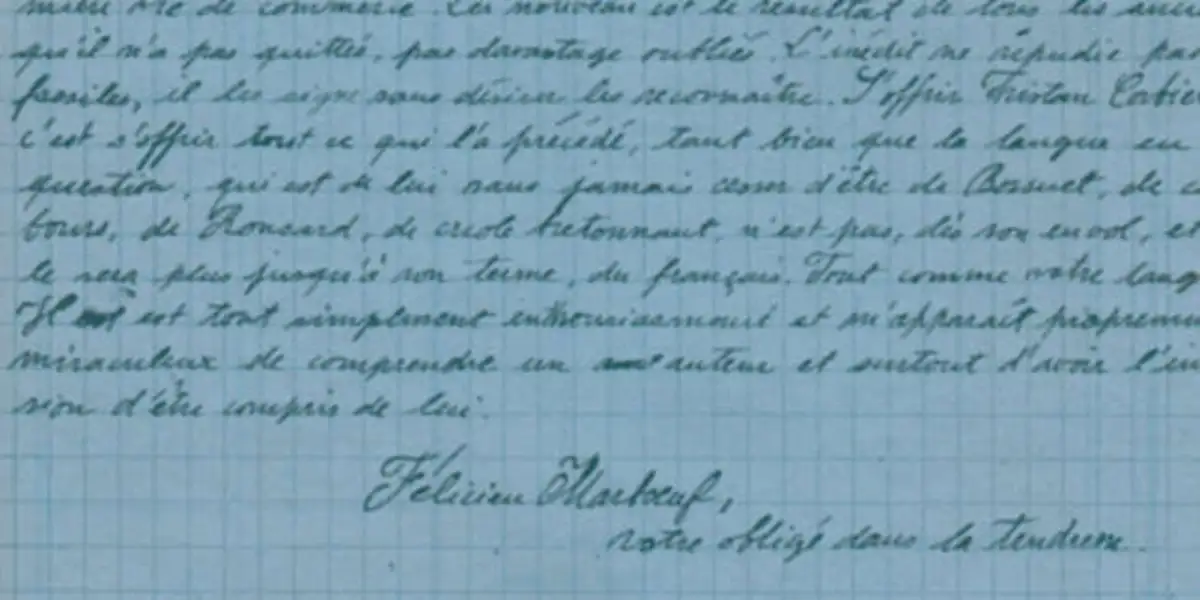 de commerce. Le nouveau est le résultat de tous les
qu'il n'a pas quittés, pas davantage oubliés. L'inédit ne répudie pas
fossiles, il les signe sans désirer les reconnaître. S'offrir Tristan Corbiè
c'est s'offrir tout ce qui l'a précédé, tant bien que la langue en
question, qui est de lui sans jamais cesser d'être de Bossuet, de
bours, de Ronsard, de créole bretonnant, n'est pas, dès son envol, et
le sera plus jusqu'à son terme, du français. Tout comme votre lang
Il est tout simplement enthousiasmant et m'apparaît proprem
miraculeux de comprendre un auteur et surtout d'avoir l'
sion d'être compris de lui.
Félicien Marboeuf,
votre obligé dans la tendresse.